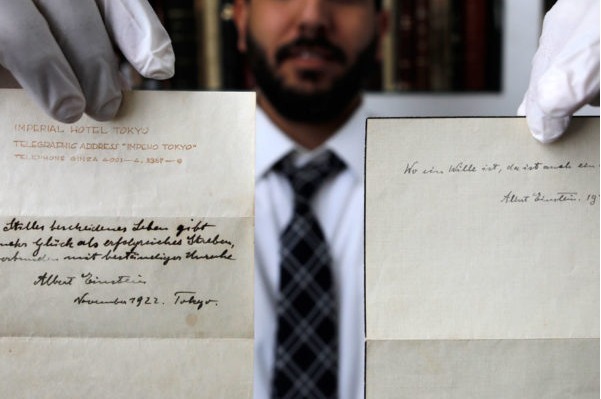 IMPERIAL HOTEL TOKYO
TELEGRAPHIC ADDRESS "IMPEHO TOKYO"
TELEPHONE GINZA
Stilles bescheidenes Leben gibt
mehr Glück als erfolgreiches Streben,
verbunden mit beständiger Unruhe
Albert Einstein
November 1922. Tokyo.
Wo ein Wille ist, da ist auch ein
Albert Einstein. 19